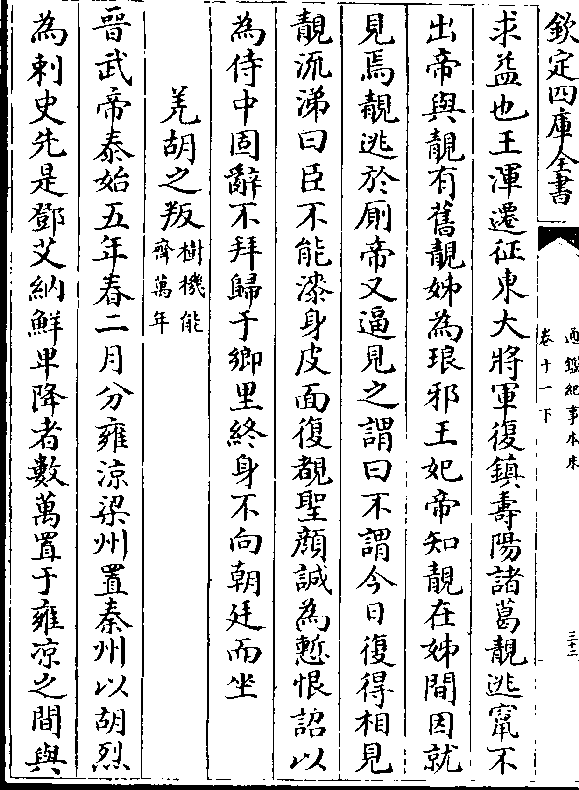 欽定四庫全書
通鑑紀事本末
卷十一下
三十二
求益也王渾遷征東大將軍復鎮壽陽諸葛靚逃竄不
出帝與靚有舊靚姊為琅邪王妃帝知靚在姊間因就
見焉靚逃於厠帝又逼見之謂曰不謂今日復得相見
靚流涕曰臣不能漆身皮面復覩聖顔誠為慙恨詔以
為侍中固辭不拜歸于鄉里終身不向朝廷而坐
羌胡之叛
樹機能
齊萬年
晉武帝泰始五年春二月分雍涼梁州置秦州以胡烈
為刺史先是鄧艾納鮮卑降者數萬置于雍凉之間與